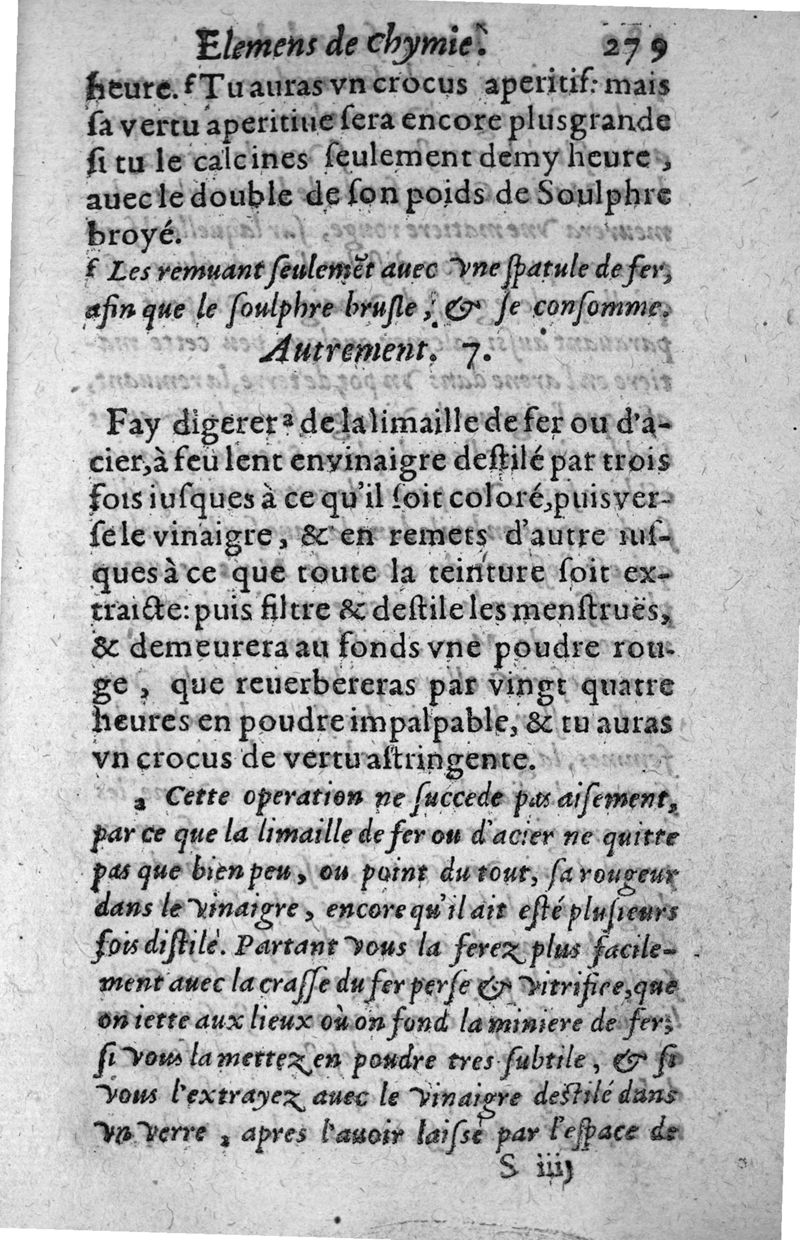 Elemens de chymie. 279
heure. ᶠ Tu auras vn crocus aperitif: mais
ſa vertu aperitiue ſera encore plus grande
ſi tu le calcines ſeulement demy heure,
auec le double de ſon poids de Soulphre
broyé.
f Les remuant ſeulemẽt auec vne ſpatule de fer,
afin que le ſoulphre bruſle, & ſe conſomme.
Autrement. 7.
Fay digererᵃ de la limaille de fer ou d'a-
cier, à feu lent en vinaigre deſtilé par trois
fois iuſques à ce qu'il ſoit coloré, puis ver-
ſe le vinaigre, & en remets d'autre iuſ-
ques à ce que toute la teinture ſoit ex-
traicte: puis filtre & deſtile les menſtruës,
& demeurera au fonds vne poudre rou-
ge, que reuerbereras par vingt quatre
heures en poudre impalpable, & tu auras
vn crocus de vertu aſtringente.
a Cette operation ne ſuccede pas aiſement,
par ce que la limaille de fer ou d'acier ne quitte
pas que bien peu, ou point du tout, ſa rougeur
dans le vinaigre, encore qu'il ait eſté pluſieurs
fois diſtilé. Partant vous la ferez plus facile-
ment auec la craſſe du fer perſe & vitrifiee, que
on iette aux lieux où on fond la miniere de fer;
ſi vous la mettez en poudre tres ſubtile, & ſi
vous l'extrayez auec le vinaigre deſtilé dans
vn verre, apres l'auoir laiſſé par l'eſpace de
S iiij